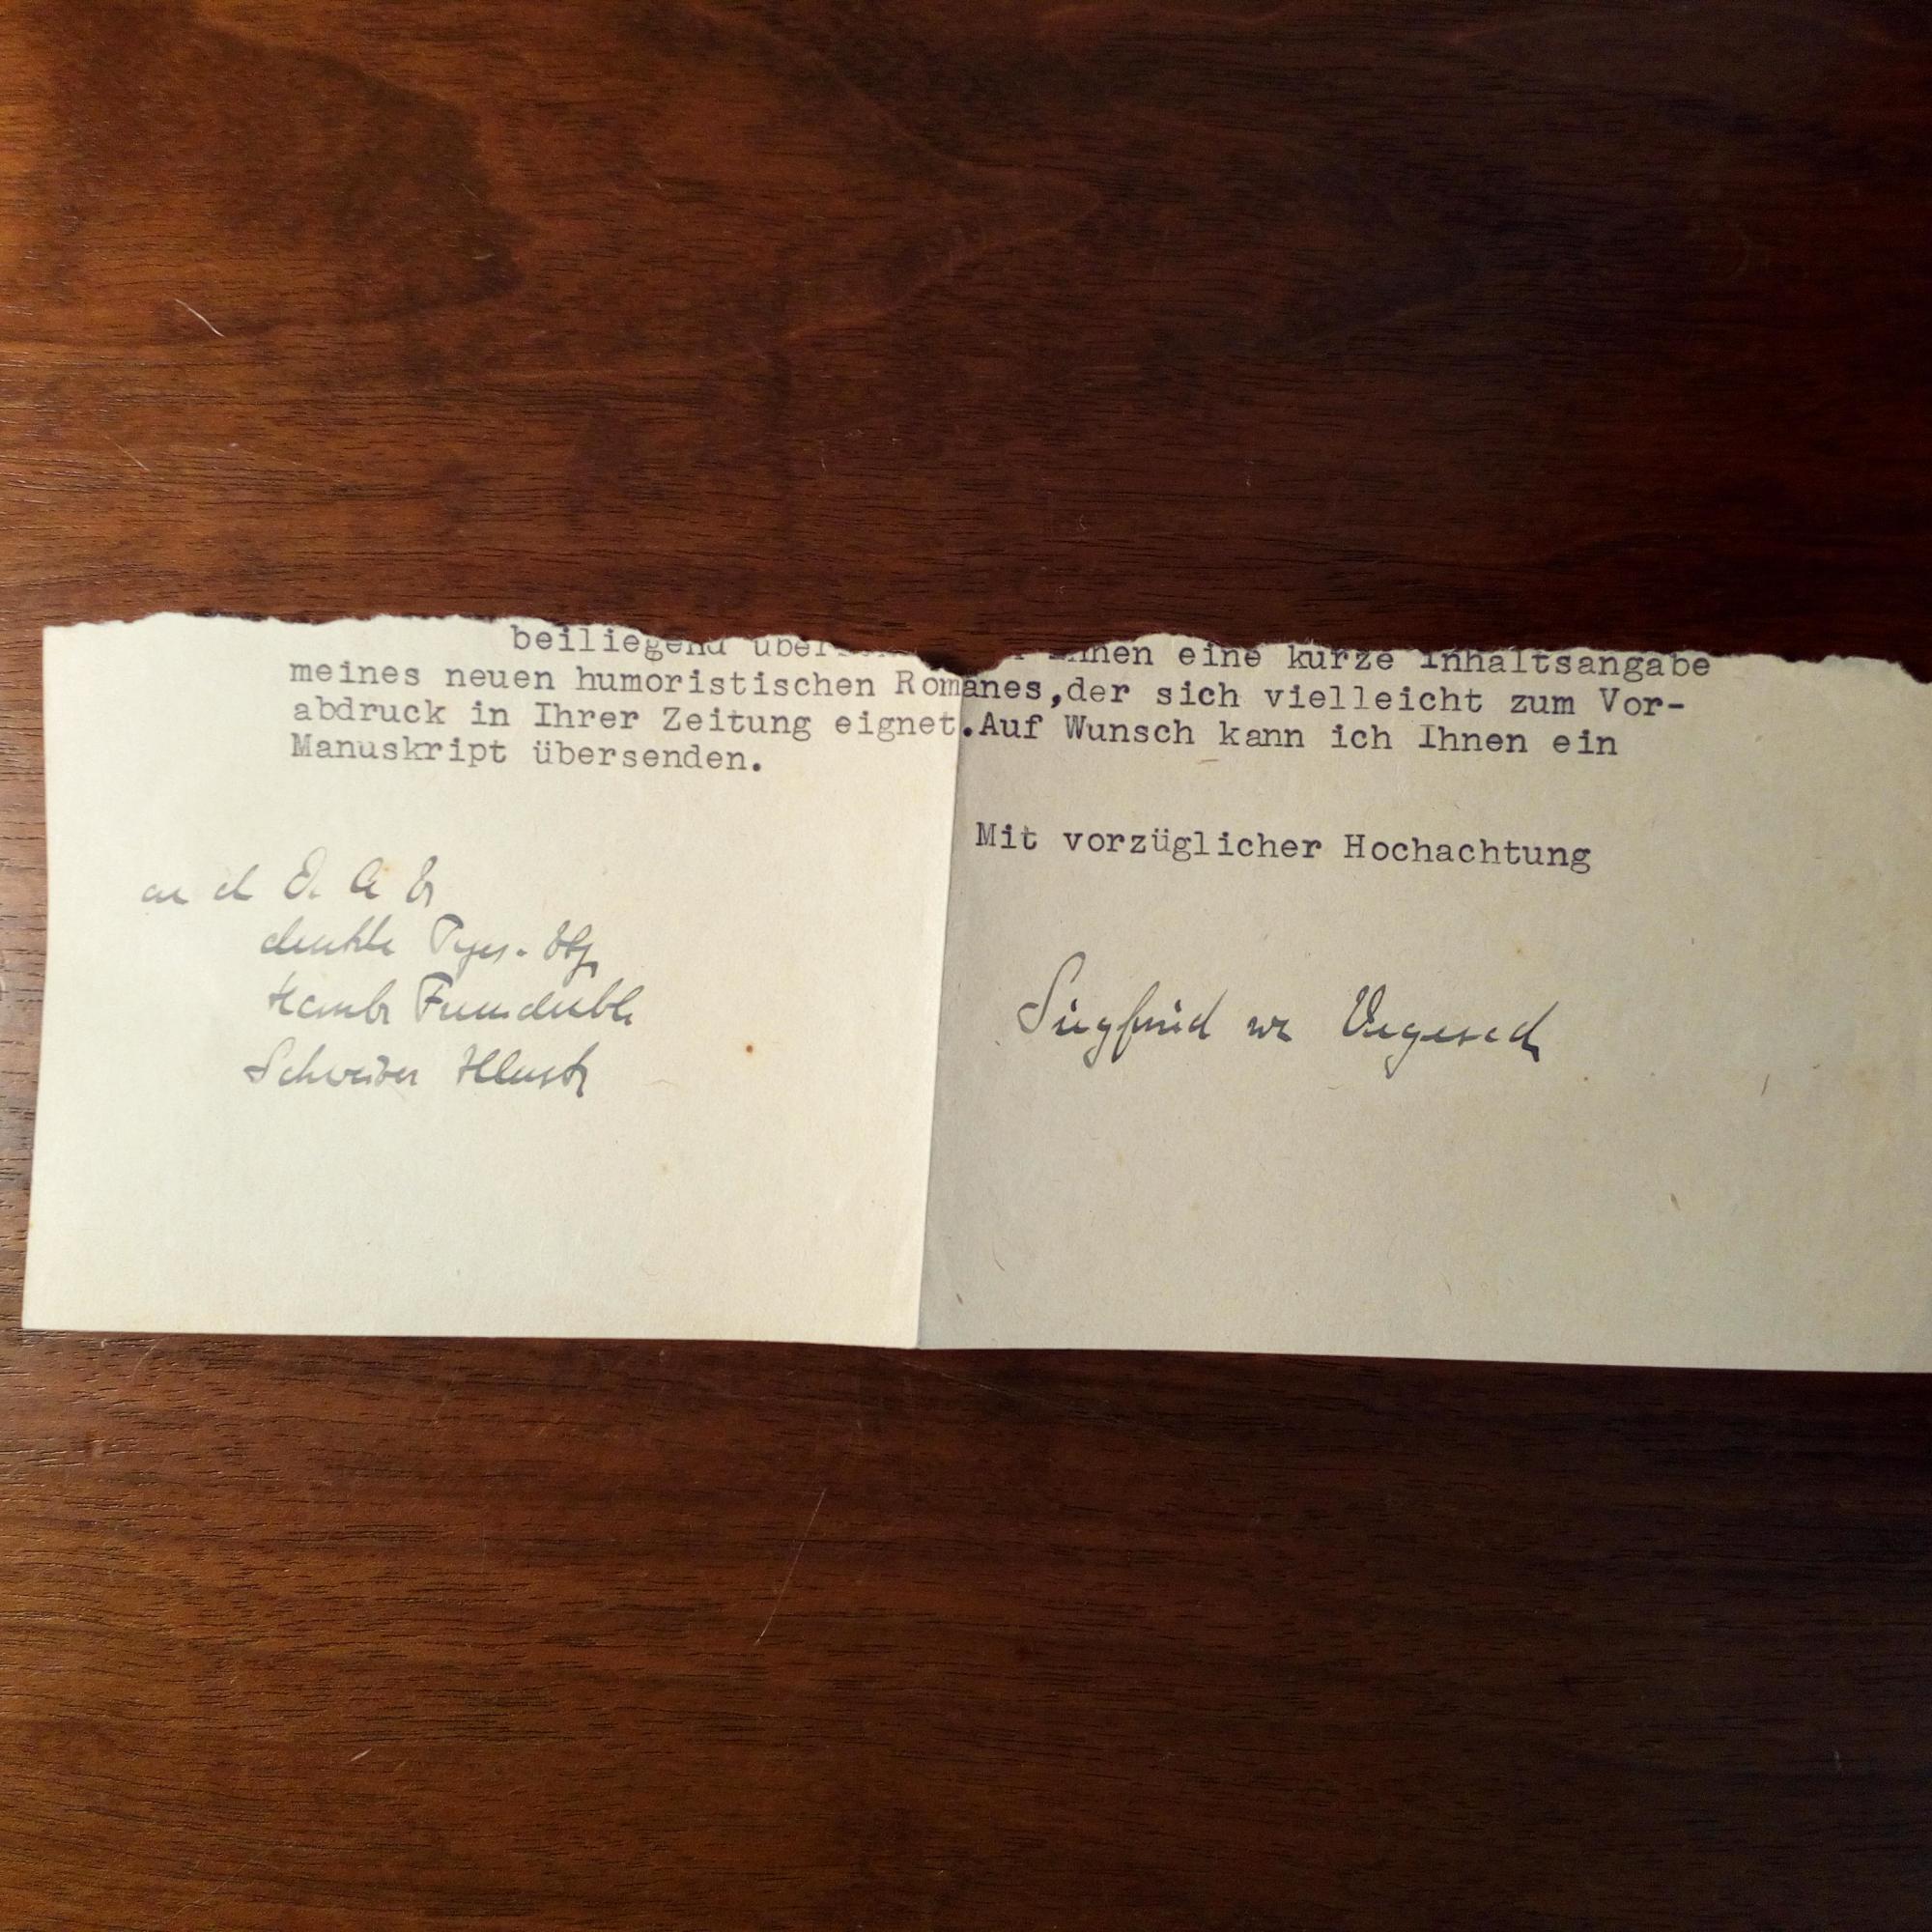 beiliegend über Ihnen eine kurze Inhaltsangabe
meines neuen humoristischen Romanes,der sich vielleicht zum Vor-
abdruck in Ihrer Zeitung eignet.Auf Wunsch kann ich Ihnen ein
Manuskript übersenden.
Mit vorzüglicher Hochachtung
an d D. A Z
Hamb Fremdenbl
Schweizer Illustr
Siegfried von Vegesack